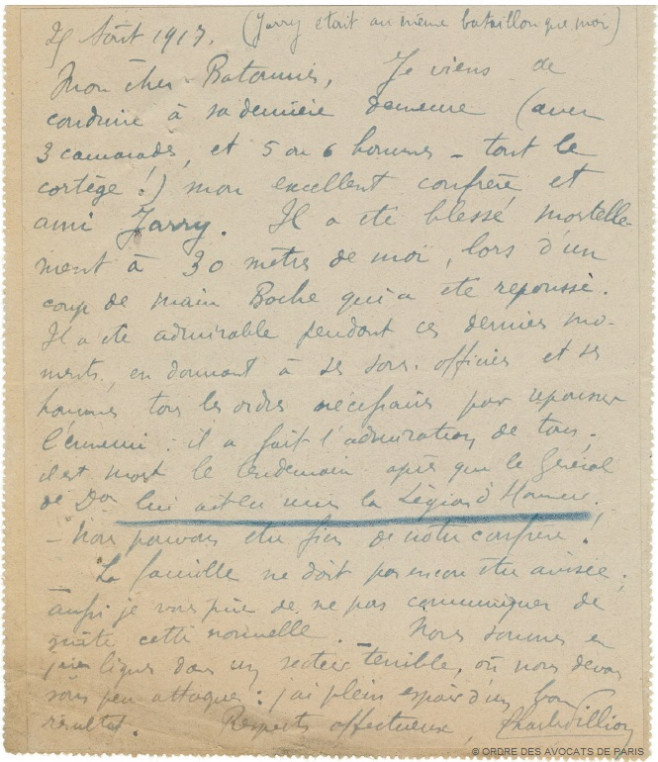 Août 1917. (Jarry était au même bataillon que moi)
Mon cher Batonnier, Je viens de
conduire à sa dernière demeure (avec
3 camarades, et 5 ou 6 hommes - tout le
cortège !) mon excellent confrère et
ami Jarry. Il a été blessé mortelle
ment à 30 mètres de moi, lors d'un
coup de main Boche qui a été repoussé.
Il a été admirable pendant ces derniers mo-
ments, en donnant à ses sous-officiers et ses
hommes tous les ordres nécessaires pour repousser
l'ennemi : il a fait l'admiration de tous.
il est mort le lendemain après que le Général
de Don lui ait eu remis la Légion d'Honneur.
- Nous pouvons être fiers de notre confrère !
La famille ne doit pas encore être avisée ;
aussi je vous prie de ne pas communiquer de
suite cette nouvelle. Nous sommes en
lignes dans un secteur terrible, où nous devons
sous peu attaquer : j'ai plein espoir d'un bon
résultat. Respects affectueux,
© ORDRE DES AVOCATS DE PARIS